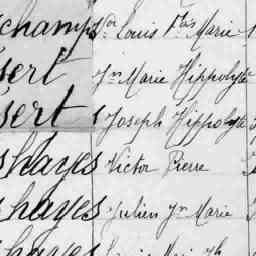 champs Louis Marie
sert Jn Marie Hippolyte
sert Joseph Hippolyte
shayes Victor Pierre
shayes Julien Jn Marie
hayes